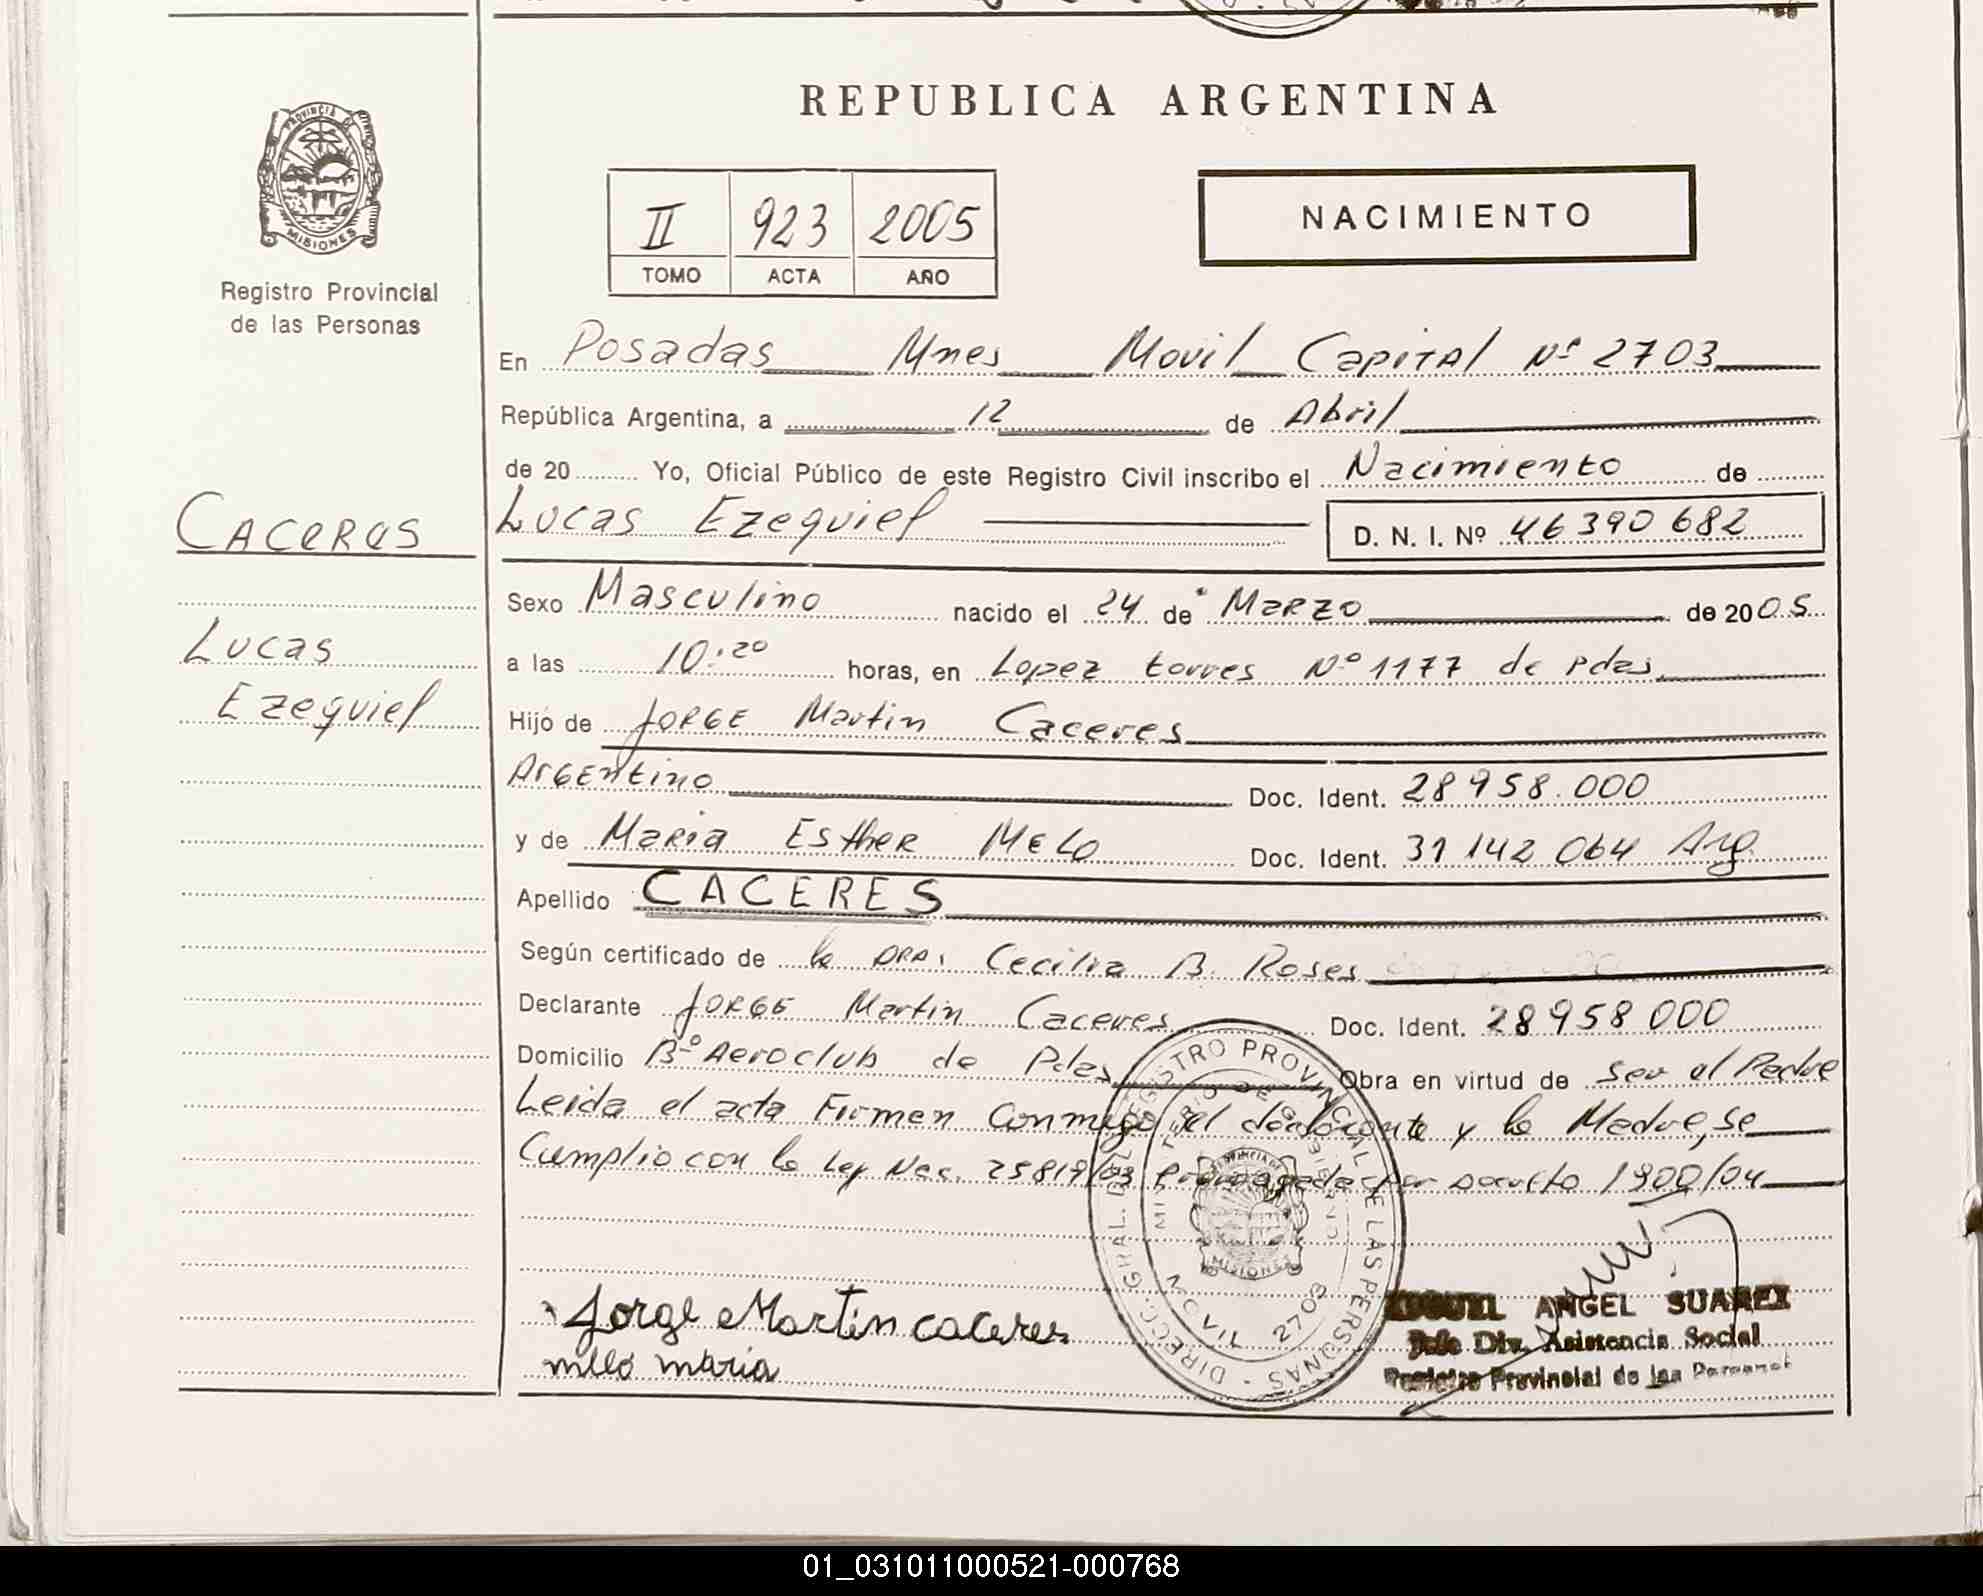 REPUBLICA ARGENTINA
PROVINCIA DE
MISIONES
Registro Provincial
de las Personas
II 923 2005
TOMO ACTA AÑO
NACIMIENTO
En Posadas Mnes Movil Capital Nº 2703
República Argentina, a 12 de Abril
de 20 Yo, Oficial Público de este Registro Civil inscribo el Nacimiento de
CACERES
Lucas Ezequiel D. N. I. Nº 46 390 682
Sexo Masculino nacido el 24 de Marzo de 2005
Lucas
a las 10:20 horas, en Lopez torres Nº 1177 de Pdas.
Ezequiel
Hijo de Jorge Martin Caceres
Argentino Doc. Ident. 28 958.000
y de Maria Esther Melo Doc. Ident. 31 142 064 Arg
Apellido CACERES
Según certificado de la DRA. Cecilia B. Roses
Declarante Jorge Martin Caceres Doc. Ident. 28 958 000
Domicilio Bº Aeroclub de Pdas Obra en virtud de ser el Padre
Leida el acta Firman conmigo el declarante y la Madre, se
Cumplio con la Ley Nac. 25819/03 por Decreto 1900/04
DIREC. GRAL. DEL REGISTRO PROVINCIAL DE LAS PERSONAS
MINISTERIO DE GOBIERNO
PROVINCIA DE
MISIONES
MOVIL 2703
Jorge Martin caceres
melo maria
MIGUEL ANGEL SUAREZ
Jefe Div. Asistencia Social
Registro Provincial de las Personas
01_031011000521-000768